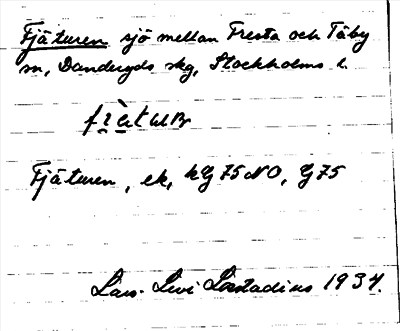 Fjäturen sjö mellan Fresta och Täby
sn, Danderyds skg, Stockholms l.
Fjäturen, ek, kg 75 NO, G 75
Lars Levi Læstadius 1934.